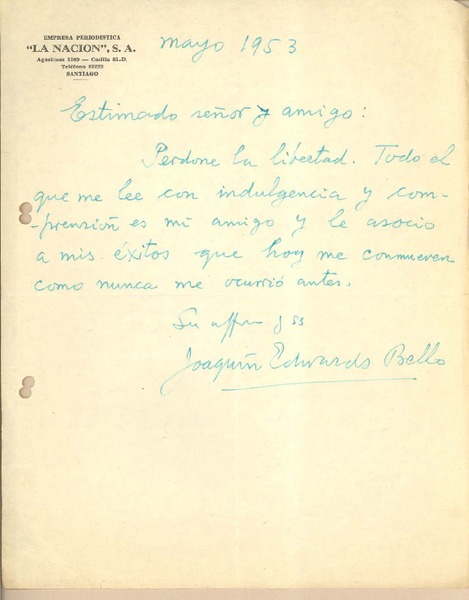 EMPRESA PERIODISTICA
"LA NACION", S. A.
Agustinas 1269 — Casilla 81-D.
Teléfono 82222
SANTIAGO
mayo 1953
Estimado señor y amigo:
Perdone la libertad. Todo el
que me lee con indulgencia y com-
-prensión es mi amigo y le asocio
a mis éxitos que hoy me conmueven
como nunca me ocurrió antes.
Su affmo y ss
Joaquín Edwards Bello